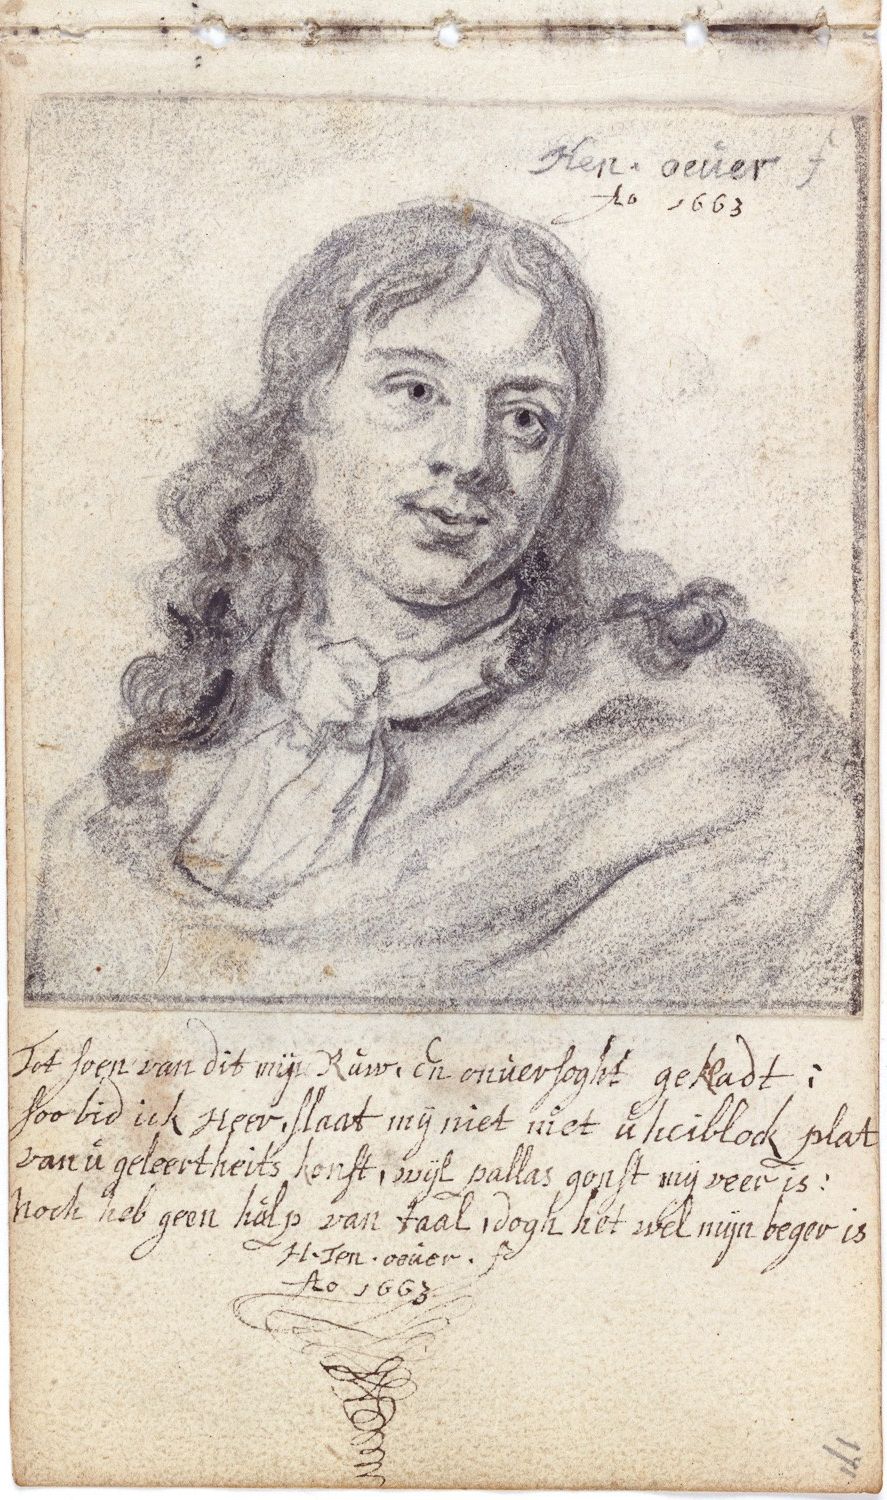 Hen. oeúer f
Ao 1663
Tot soen van dit mijn Rúw. En onúersoght gekladt;
soo bid ick Heer, slaat mij niet met ú heiblock plat
van ú geleertheits konst, wijl pallas gonst mij veer is:
noch heb geen húlp van taal, dogh het wel mijn beger is
H. Ten. oeúer. f
Ao 1663
17